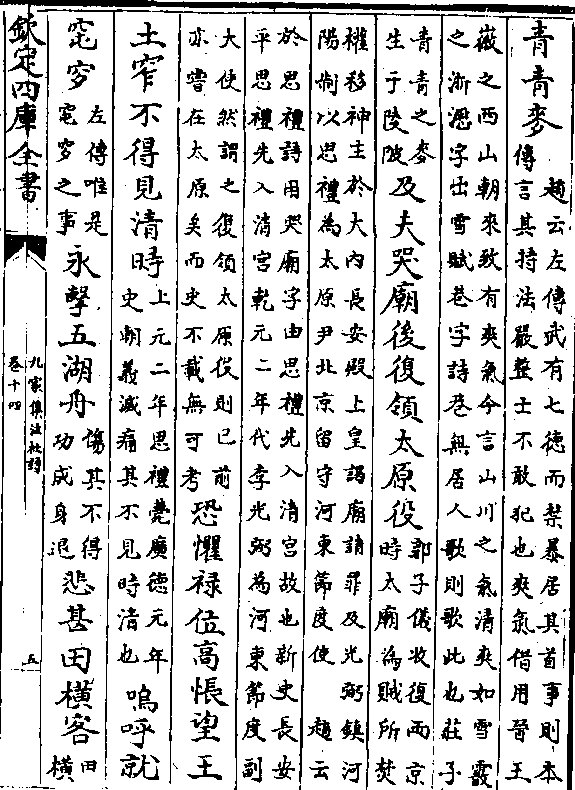 青青麥趙云左傳武有七德而禁暴居其首事則本
傳言其持法嚴整士不敢犯也爽氣借用晉王
徽之西山朝來致有爽氣今言山川之氣清爽如雪霰
之淅瀝字出雪賦巷字詩巷無居人歌則歌此也莊子
青青之麥
生于陵陂及夫哭廟後復領太原役郭子儀收復兩京
時太廟為賊所焚
權移神主於大內長安殿上皇謁廟請罪及光弼鎮河
陽制以思禮為太原尹北京留守河東節度使 趙云
於思禮詩用哭廟字由思禮先入清宮故也新史長安
平思禮先入清宮乾元二年代李光弼為河東節度副
大使然謂之復領太原役則已前
亦嘗在太原矣而史不載無可考恐懼禄位高悵望王
土窄不得見清時上元二年思禮薨廣德元年
史朝義滅痛其不見時清也嗚呼就
窀穸左傳唯是
窀穸之事永擊五湖舟傷其不得
功成身退悲甚田横客田
横
欽定四庫全書
九家集注杜詩
卷十四
五